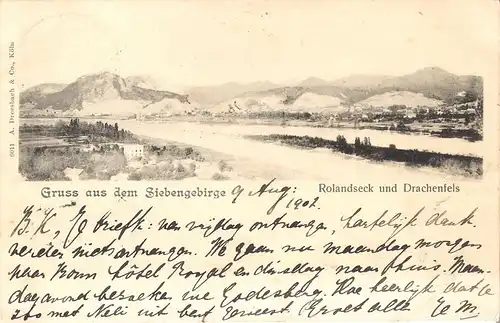 6011 A. Dresbach & Co., Köln
Gruss aus dem Siebengebirge
9 Aug: 1902
Rolandseck und Drachenfels
B. K, Je brief: van vrijdag ontvangen, hartelijk dank
verder niets ontvangen. We gaan nu maandag morgen
naar Bonn hôtel Royal en dinsdag naar huis. Maan-
dag avond bezoeken we Godesberg. Hoe heerlijk dat je
zoo met Neli uit bent geweest. Groet alle